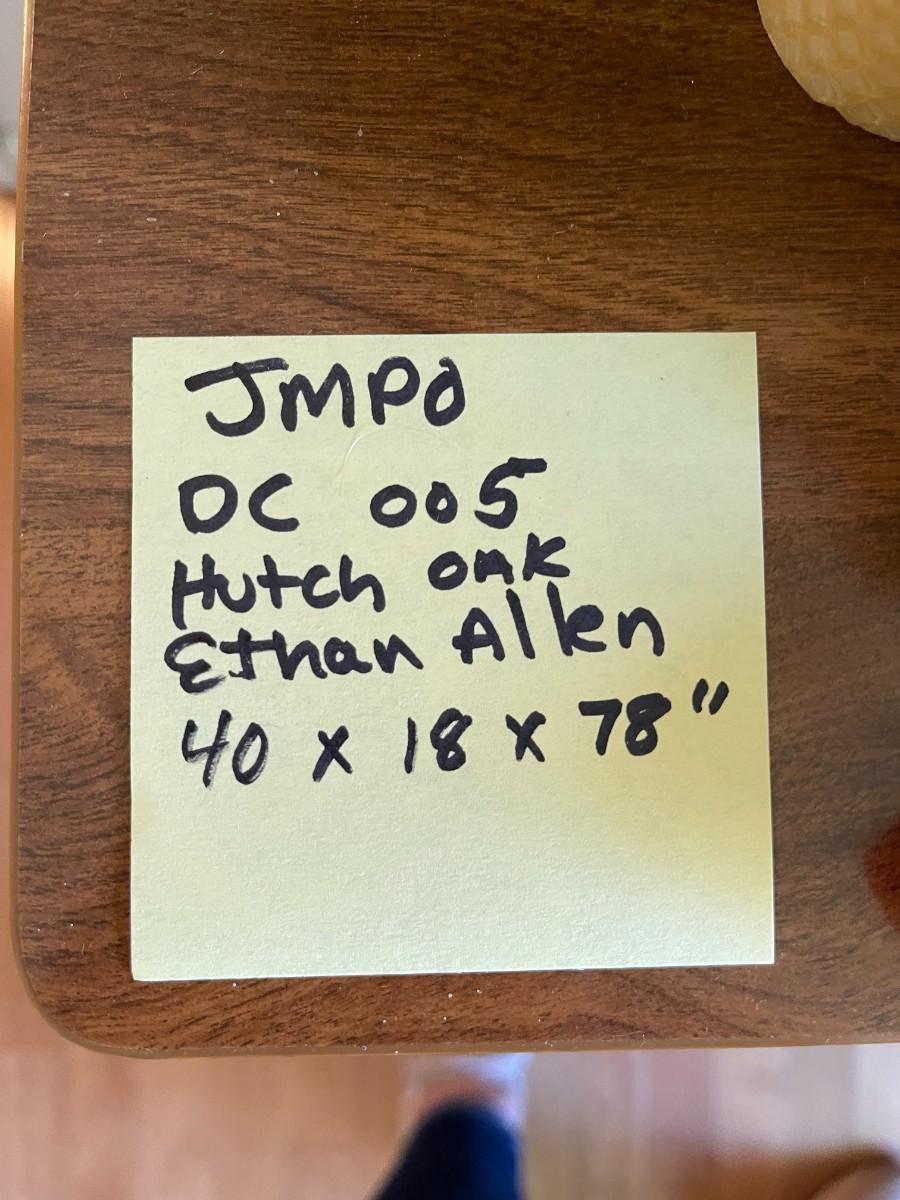 JMPO
DC 005
Hutch Oak
Ethan Allen
40 x 18 x 78"